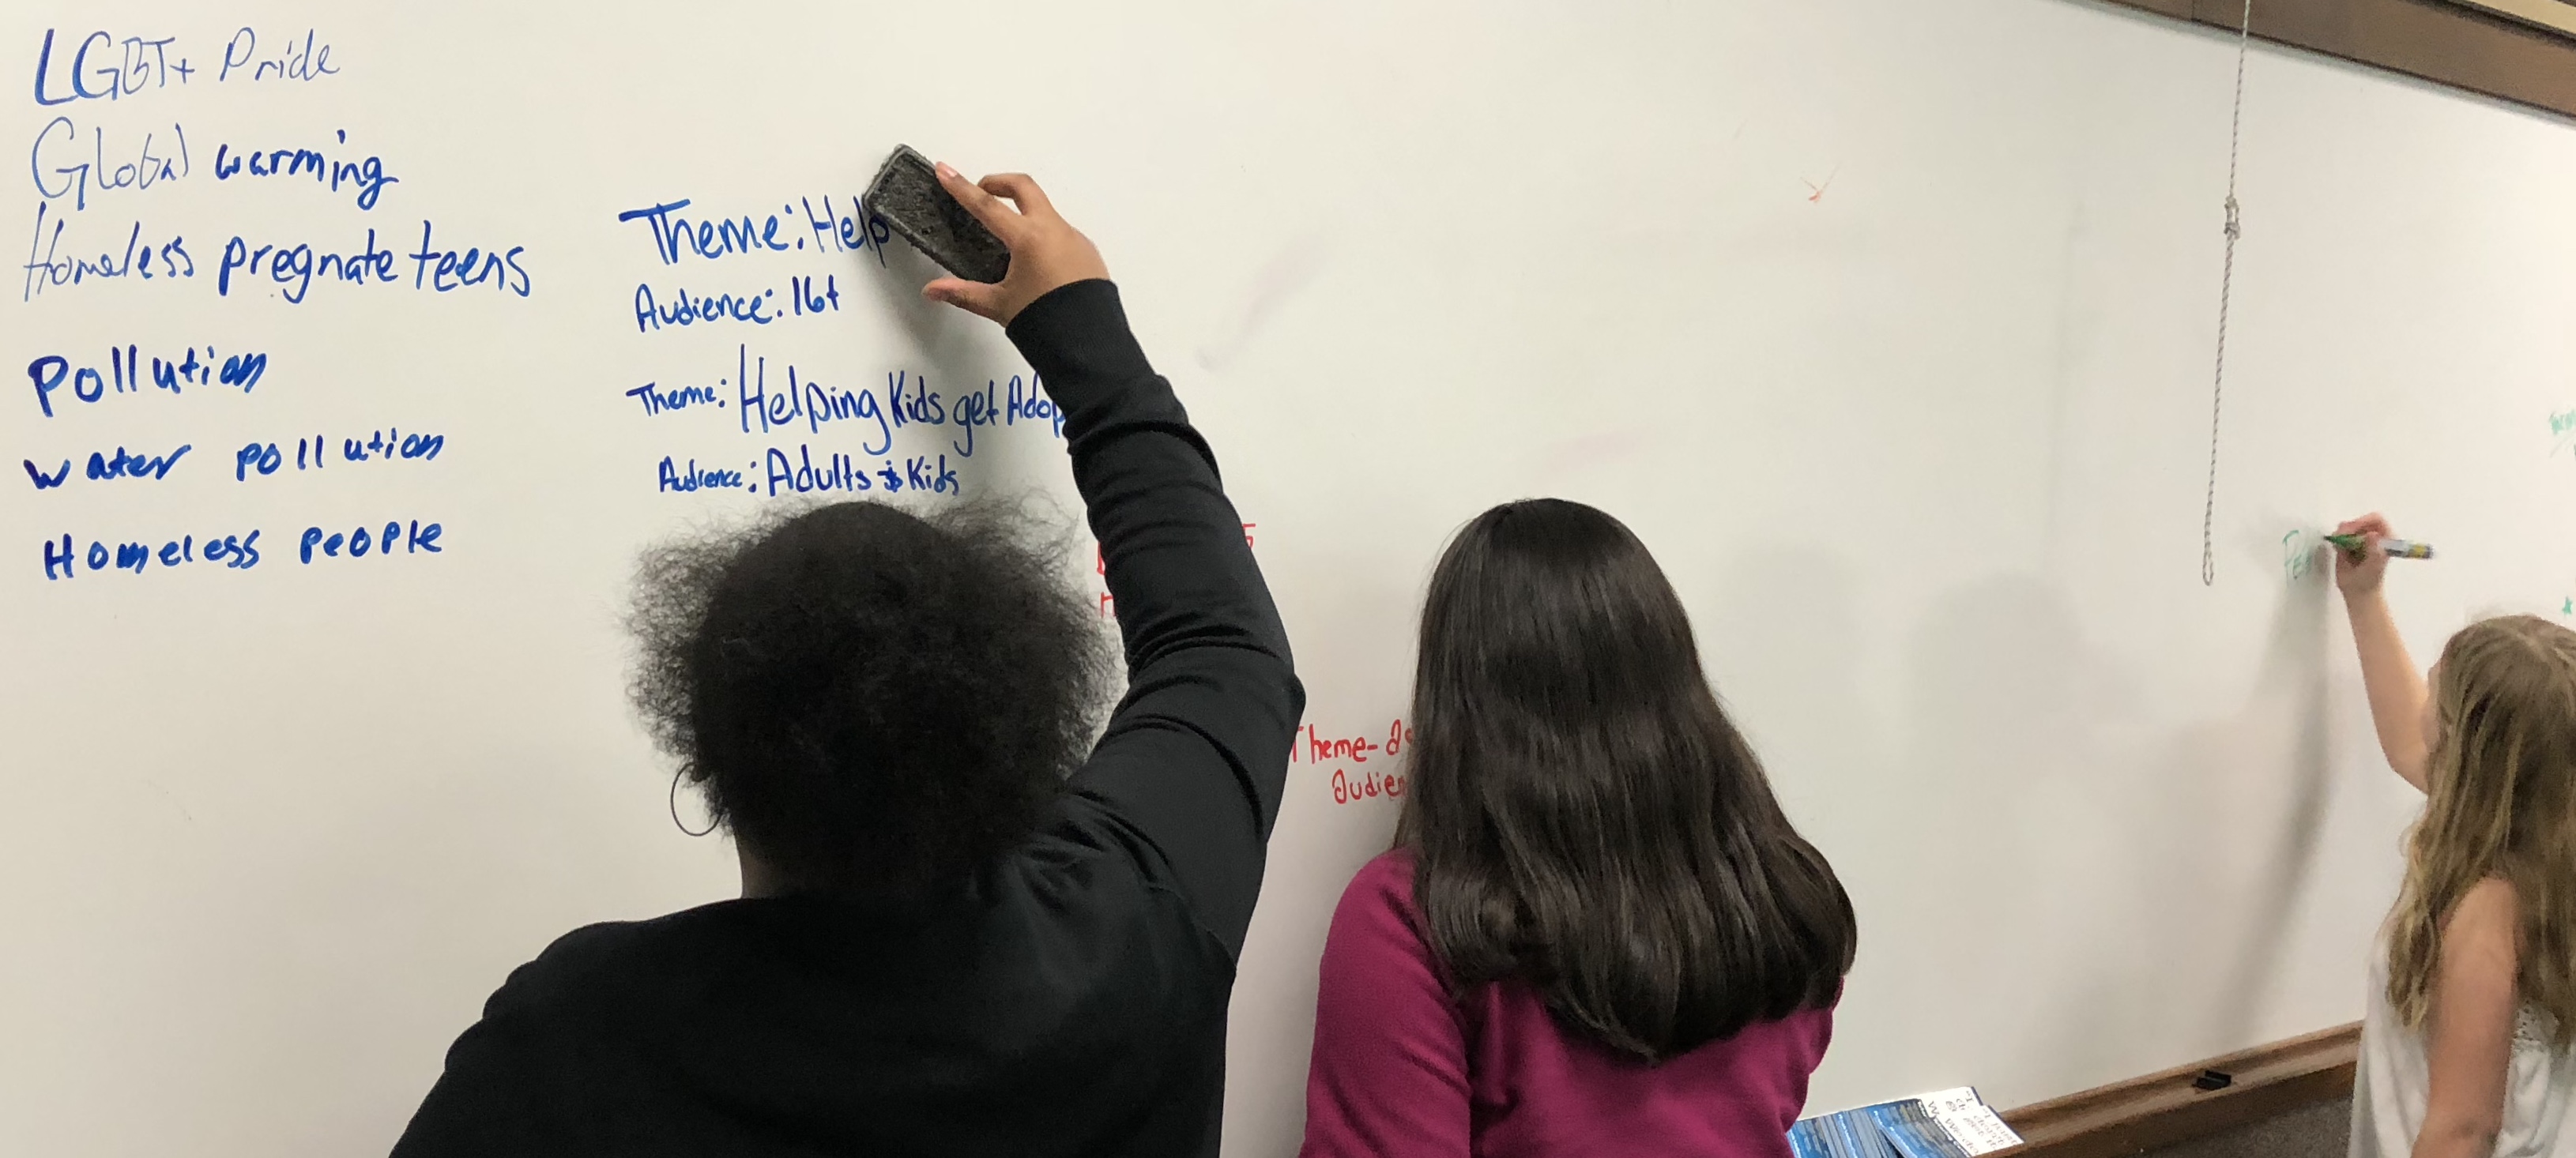 LGBT+ Pride
Global warming
Homeless pregnate teens
Pollution
water pollution
Homeless people
Theme: Help
Audience: 16+
Theme: Helping Kids get Adop
Audience: Adults & Kids
Theme-